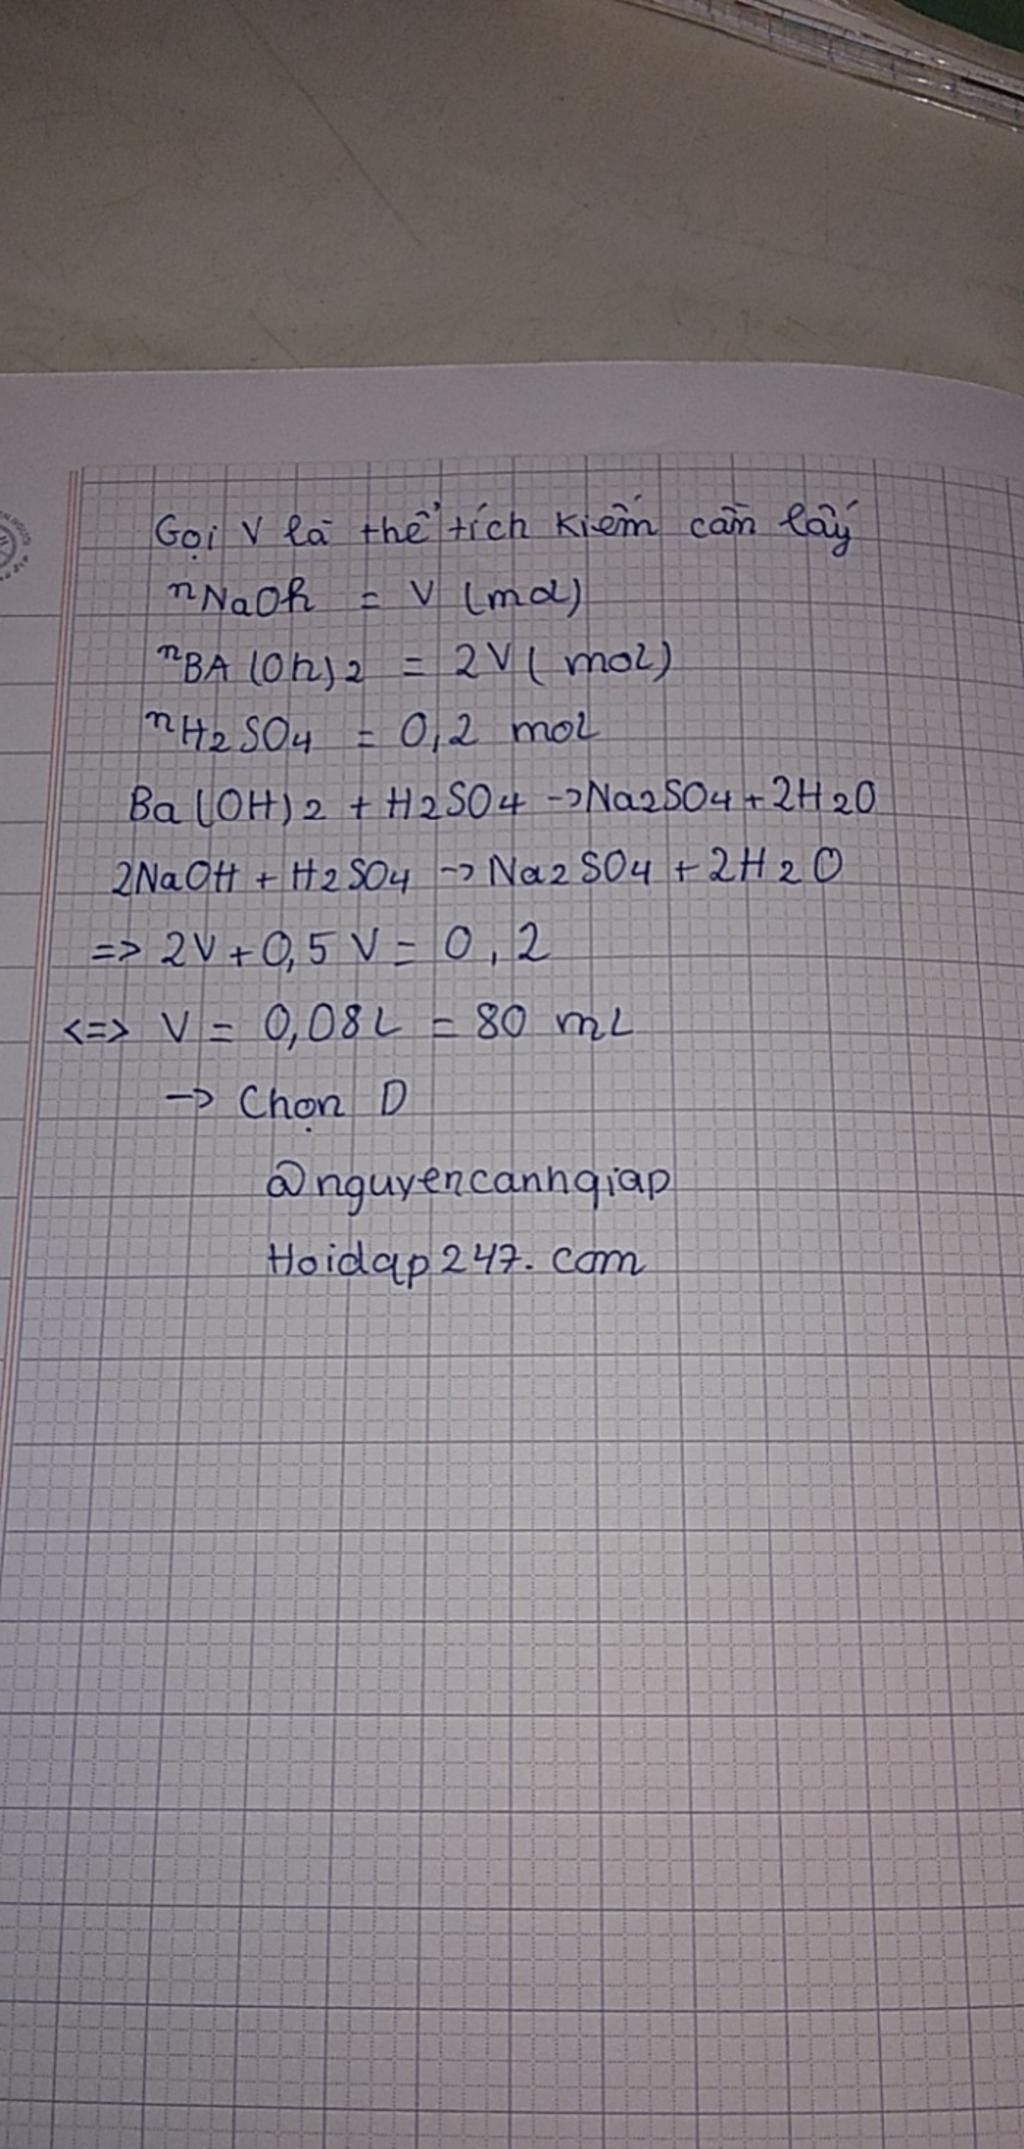 Gọi V là thể tích kiềm cần lấy
nNaOh = V (mol)
nBA(Oh)2 = 2V (mol)
nH2SO4 = 0,2 mol
Ba(OH)2 + H2SO4 -> Na2SO4 + 2H2O
2NaOH + H2SO4 -> Na2SO4 + 2H2O
=> 2V + 0,5 V = 0,2
<=> V = 0,08L = 80 mL
-> Chọn D
@nguyencanhgiap
Hoidap247.com